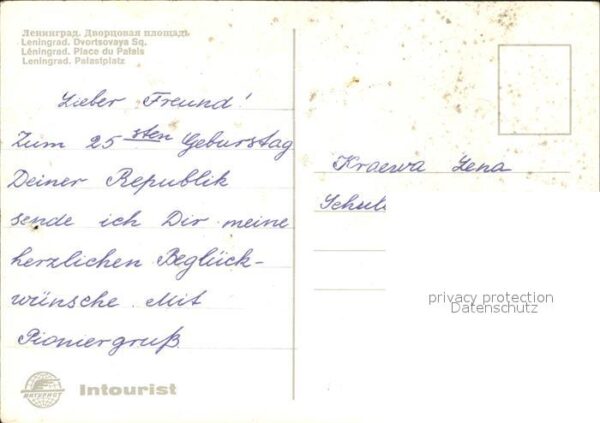 Ленинград. Дворцовая площадь
Leningrad. Dvortsovaya Sq.
Léningrad. Place du Palais
Leningrad. Palastplatz
Lieber Freund!
Zum 25 sten Geburstag
Deiner Republik
sende ich Dir meine
herzlichen Beglück-
wünsche. Mit
Pioniergruß
Kraewa Lena
Schul
privacy protection
Datenschutz
ИНТУРИСТ
Intourist